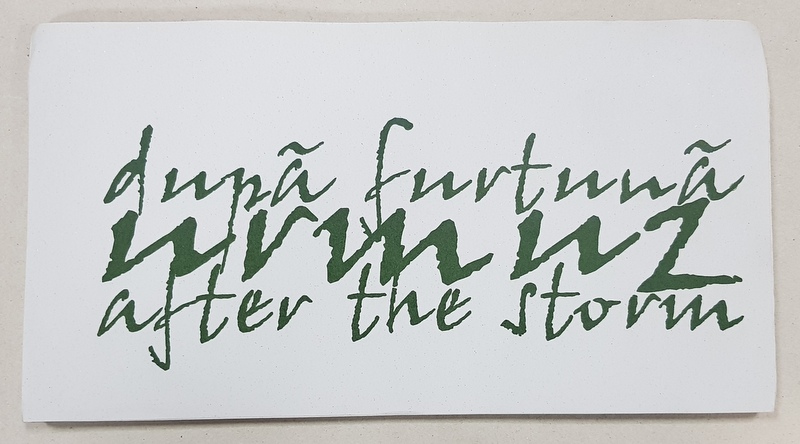 după furtună
urmuz
after the storm